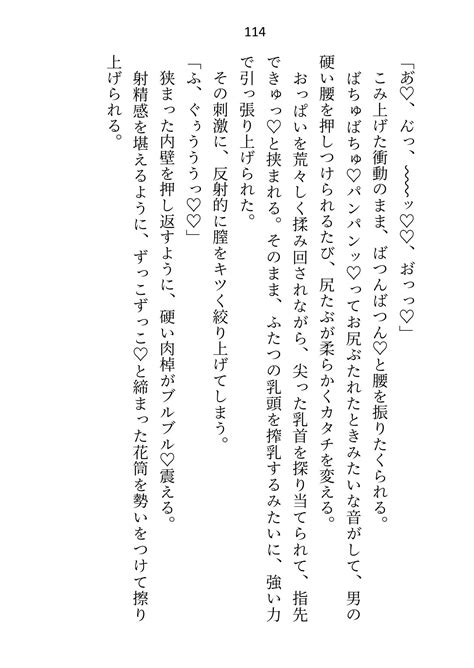 114
「お゙♡、ん゙っ、～～～ッ♡♡、お゙っっ♡」
こみ上げた衝動のまま、ばつんばつん♡と腰を振りたくられる。
ばちゅばちゅ♡パンパンッ♡ってお尻ぶたれたときみたいな音がして、男の
硬い腰を押しつけられるたび、尻たぶが柔らかくカタチを変える。
おっぱいを荒々しく揉み回されながら、尖った乳首を探り当てられて、指先
できゅっ♡と挟まれる。そのまま、ふたつの乳頭を搾乳するみたいに、強い力
で引っ張り上げられた。
その刺激に、反射的に膣をキツく絞り上げてしまう。
「ふ、ぐぅうううっ♡♡」
狭まった内壁を押し返すように、硬い肉棹がブルブル♡震える。
射精感を堪えるように、ずっこずっこ♡と締まった花筒を勢いをつけて擦り
上げられる。